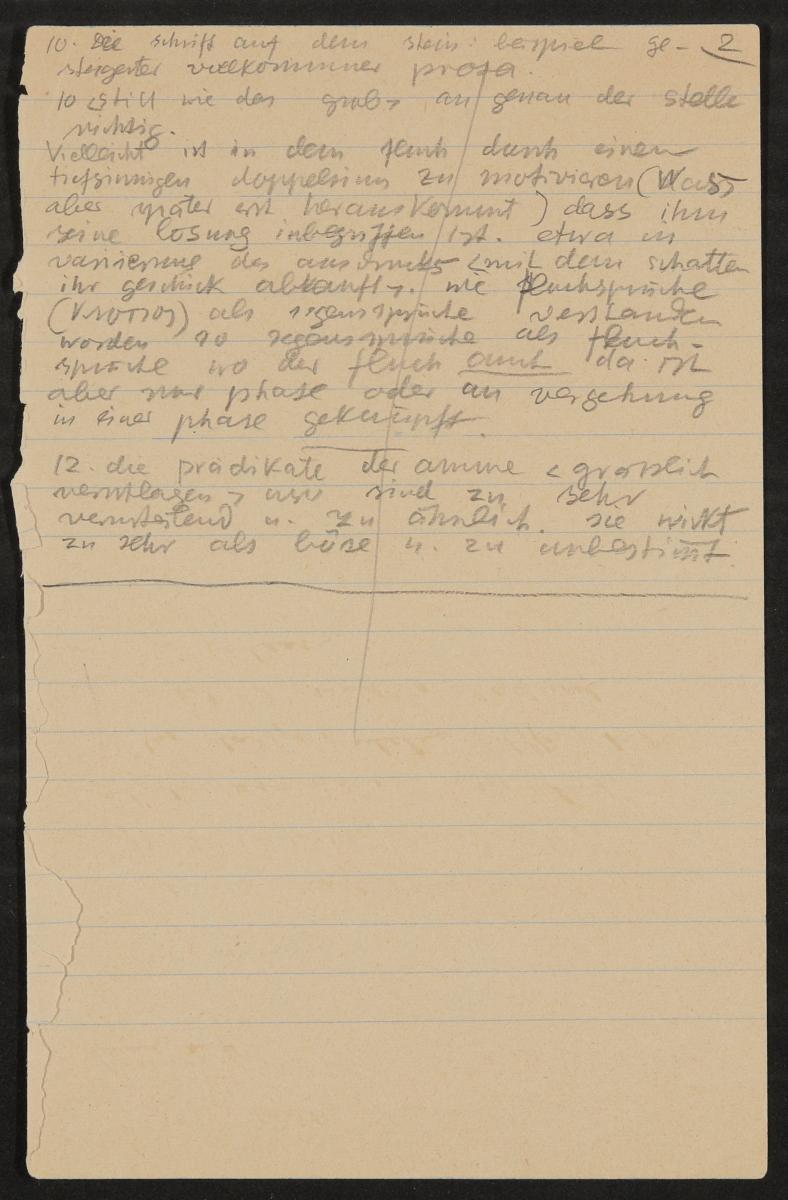 10. die schrift auf dem stein: beispiel ge- 2
steigerter vollkommener prosa.
10 <still wie das grab> an genau der stelle
richtig.
Vielleicht ist in dem fluch durch einen
tiefsinnigen doppelsinn zu motivieren (Wass
aber später erst herauskommt) dass ihm
seine lösung inbegriffen ist. etwa in
variierung des ausdrucks <mit dem schatten
ihr geschick abkauft>. wie fluchsprüche
als segenssprüche verstanden
worden so segenssprüche als fluch-
sprüche wo der fluch auch da ist
aber nur phase oder an vergehung
in einer phase geknüpft.
12. die prädikate der amme < grässlich
verschlagen > usw sind zu sehr
verurteilend u. zu ähnlich. sie wirkt
zu sehr als böse u. zu unbestimt.